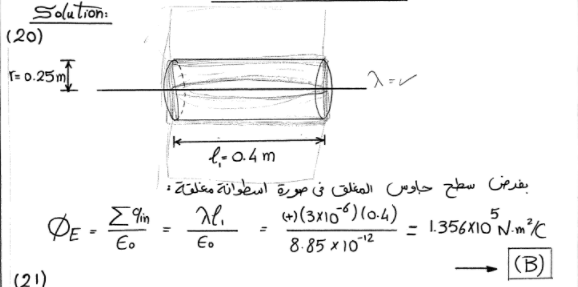 Solution:
(20)
r= 0.25m
λ = ✓
ℓ₁= 0.4 m
بفرض سطح جاوس المغلق فى صورة اسطوانة مغلقة :
ØE = Σqin / ε₀ = λℓ₁ / ε₀ = (+)(3×10⁻⁶)(0.4) / 8.85×10⁻¹² = 1.356×10⁵ N·m²/C
→ (B)
(21)